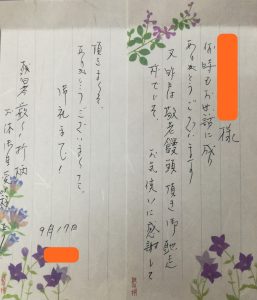 様
何時もお世話に成り
ありがとうございます
又昨日は敬老饅頭頂き御馳走
さまでした お気使いに感謝して
頂きました
ありがとうございました
御礼まで!
9月17日
残暑厳しい折柄
お体御自愛